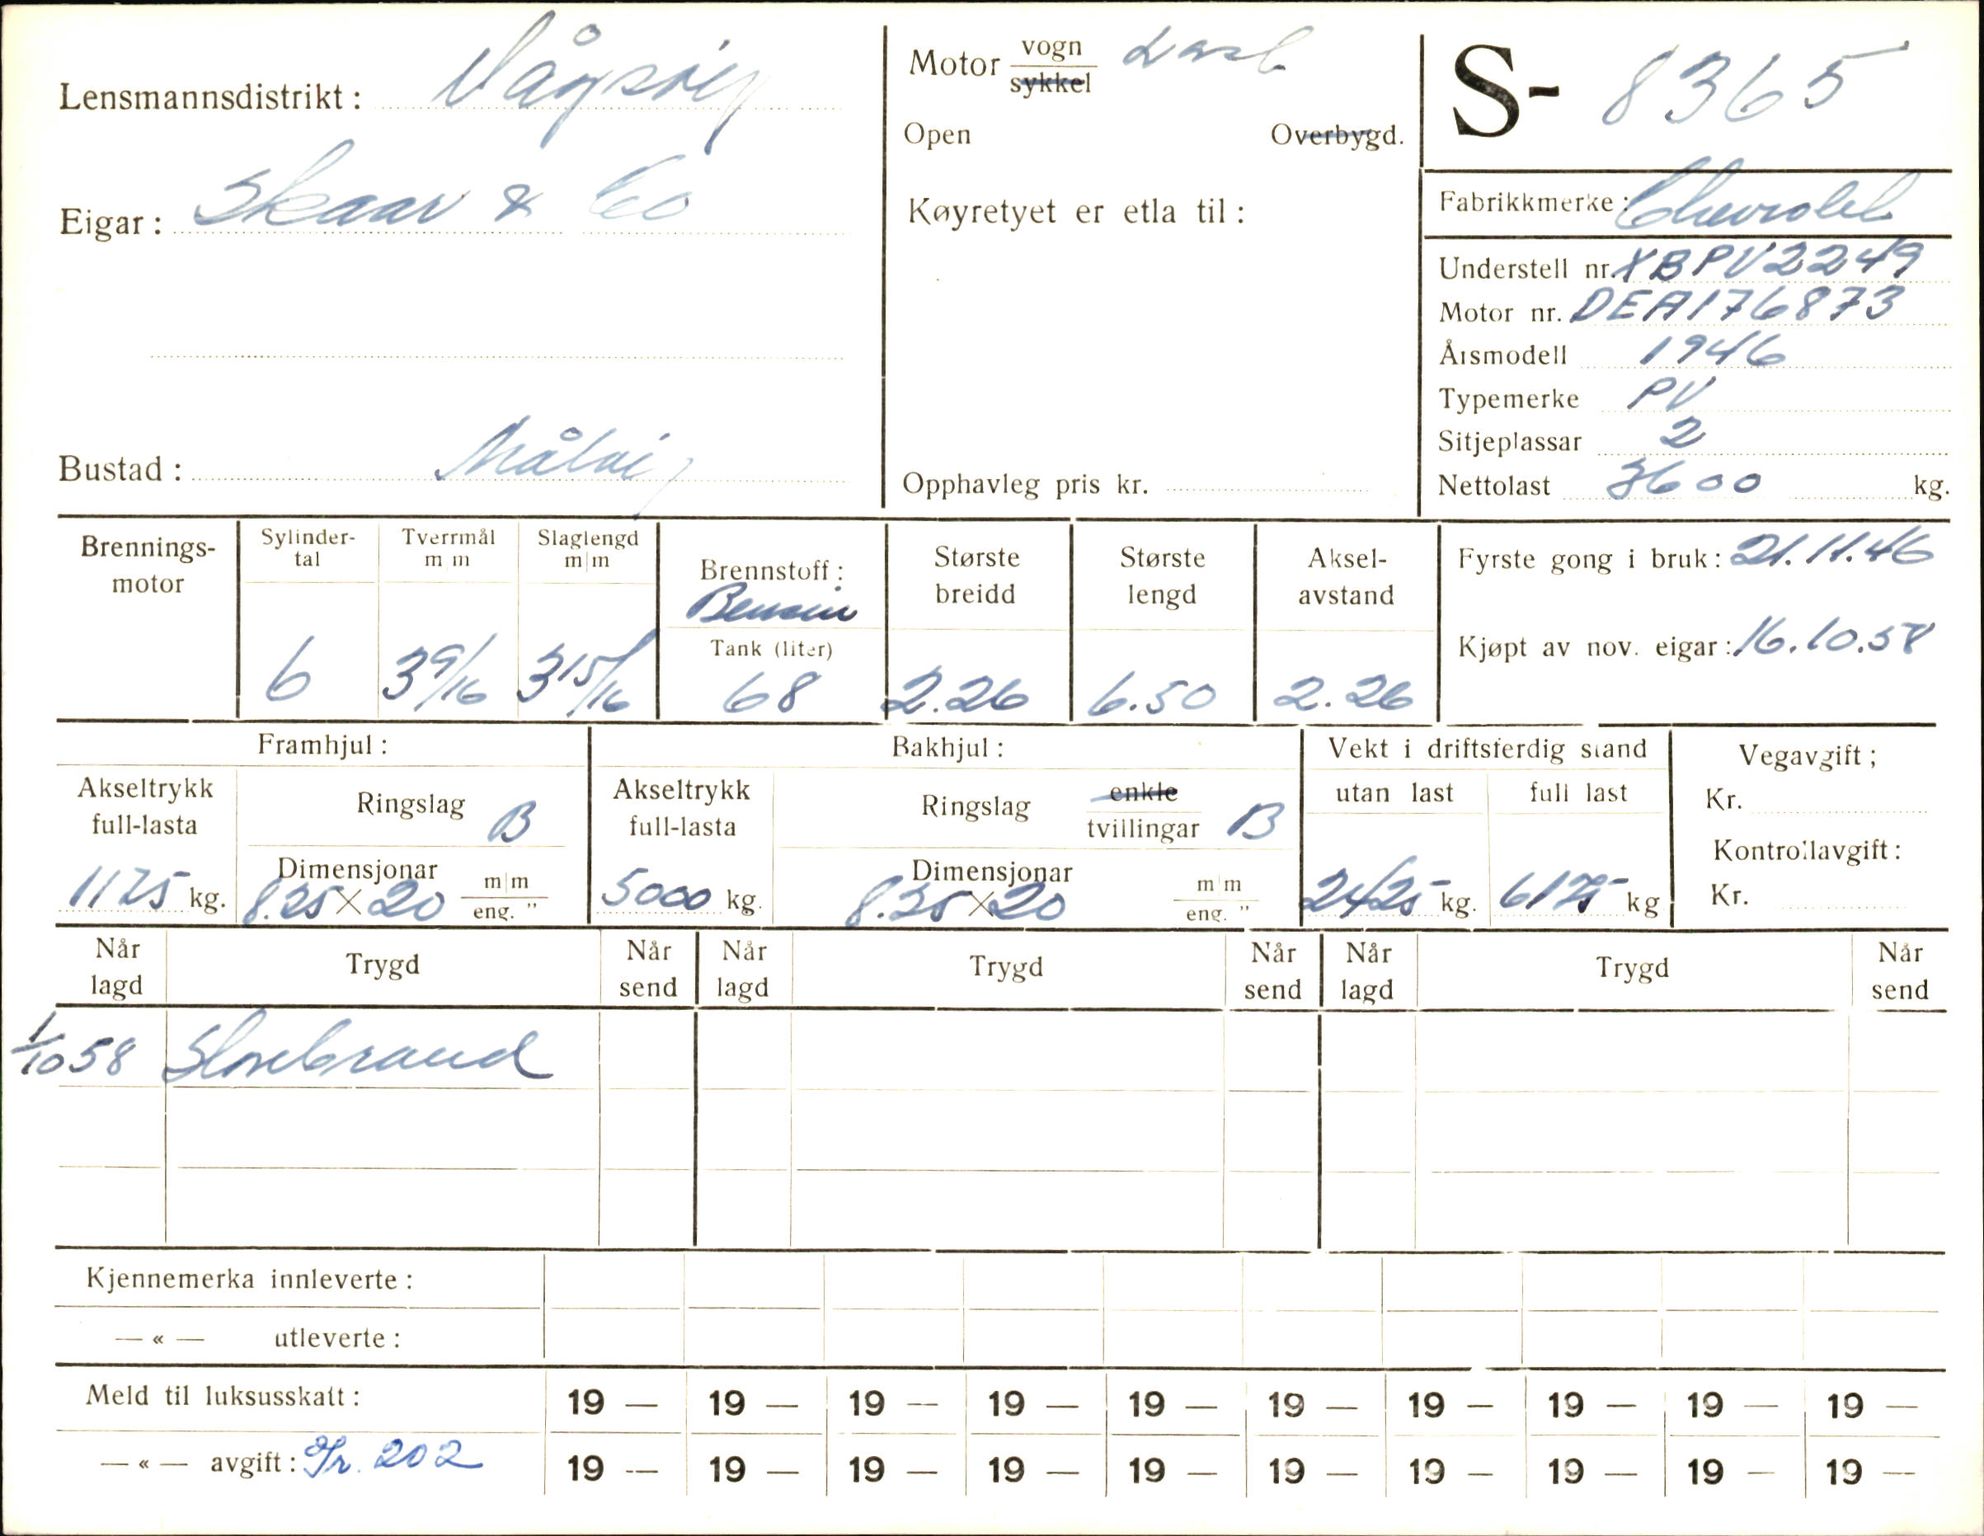 Lensmannsdistrikt: Vågsøy
Eigar: Skaar & Co
Bustad: Måløy
Motor vogn / sykkel Last
Open Overbygd.
Køyretyet er etla til:
Opphavleg pris kr.
S- 8365
Fabrikkmerke: Chevrolet
Understell nr. XBPV2249
Motor nr. DEA176873
Årsmodell 1946
Typemerke PV
Sitjeplassar 2
Nettolast 3600 kg.
Brennings-
motor
Sylinder-
tal
6
Tverrmål
m m
3 9/16
Slaglengd
m/m
3 15/16
Brennstoff:
Bensin
Tank (liter)
68
Største
breidd
2.26
Største
lengd
6.50
Aksel-
avstand
2.26
Fyrste gong i bruk: 21.11.46
Kjøpt av nov. eigar: 16.10.58
Framhjul:
Akseltrykk
full-lasta
1175 kg.
Ringslag B
Dimensjonar
8.25 × 20 m/m
eng. "
Bakhjul:
Akseltrykk
full-lasta
5000 kg.
Ringslag enkle
tvillingar B
Dimensjonar
8.25 × 20 m/m
eng. "
Vekt i driftsferdig stand
utan last
2425 kg.
full last
6175 kg
Vegavgift;
Kr.
Kontrollavgift:
Kr.
Når
lagd Trygd Når
send Når
lagd Trygd Når
send Når
lagd Trygd Når
send
1/10 58 Storebrand
Kjennemerka innleverte:
— « — utleverte:
Meld til luksusskatt: 19 — 19 — 19 — 19 — 19 — 19 — 19 — 19 — 19 — 19 —
— « — avgift: Gr. 202 19 — 19 — 19 — 19 — 19 — 19 — 19 — 19 — 19 — 19 —